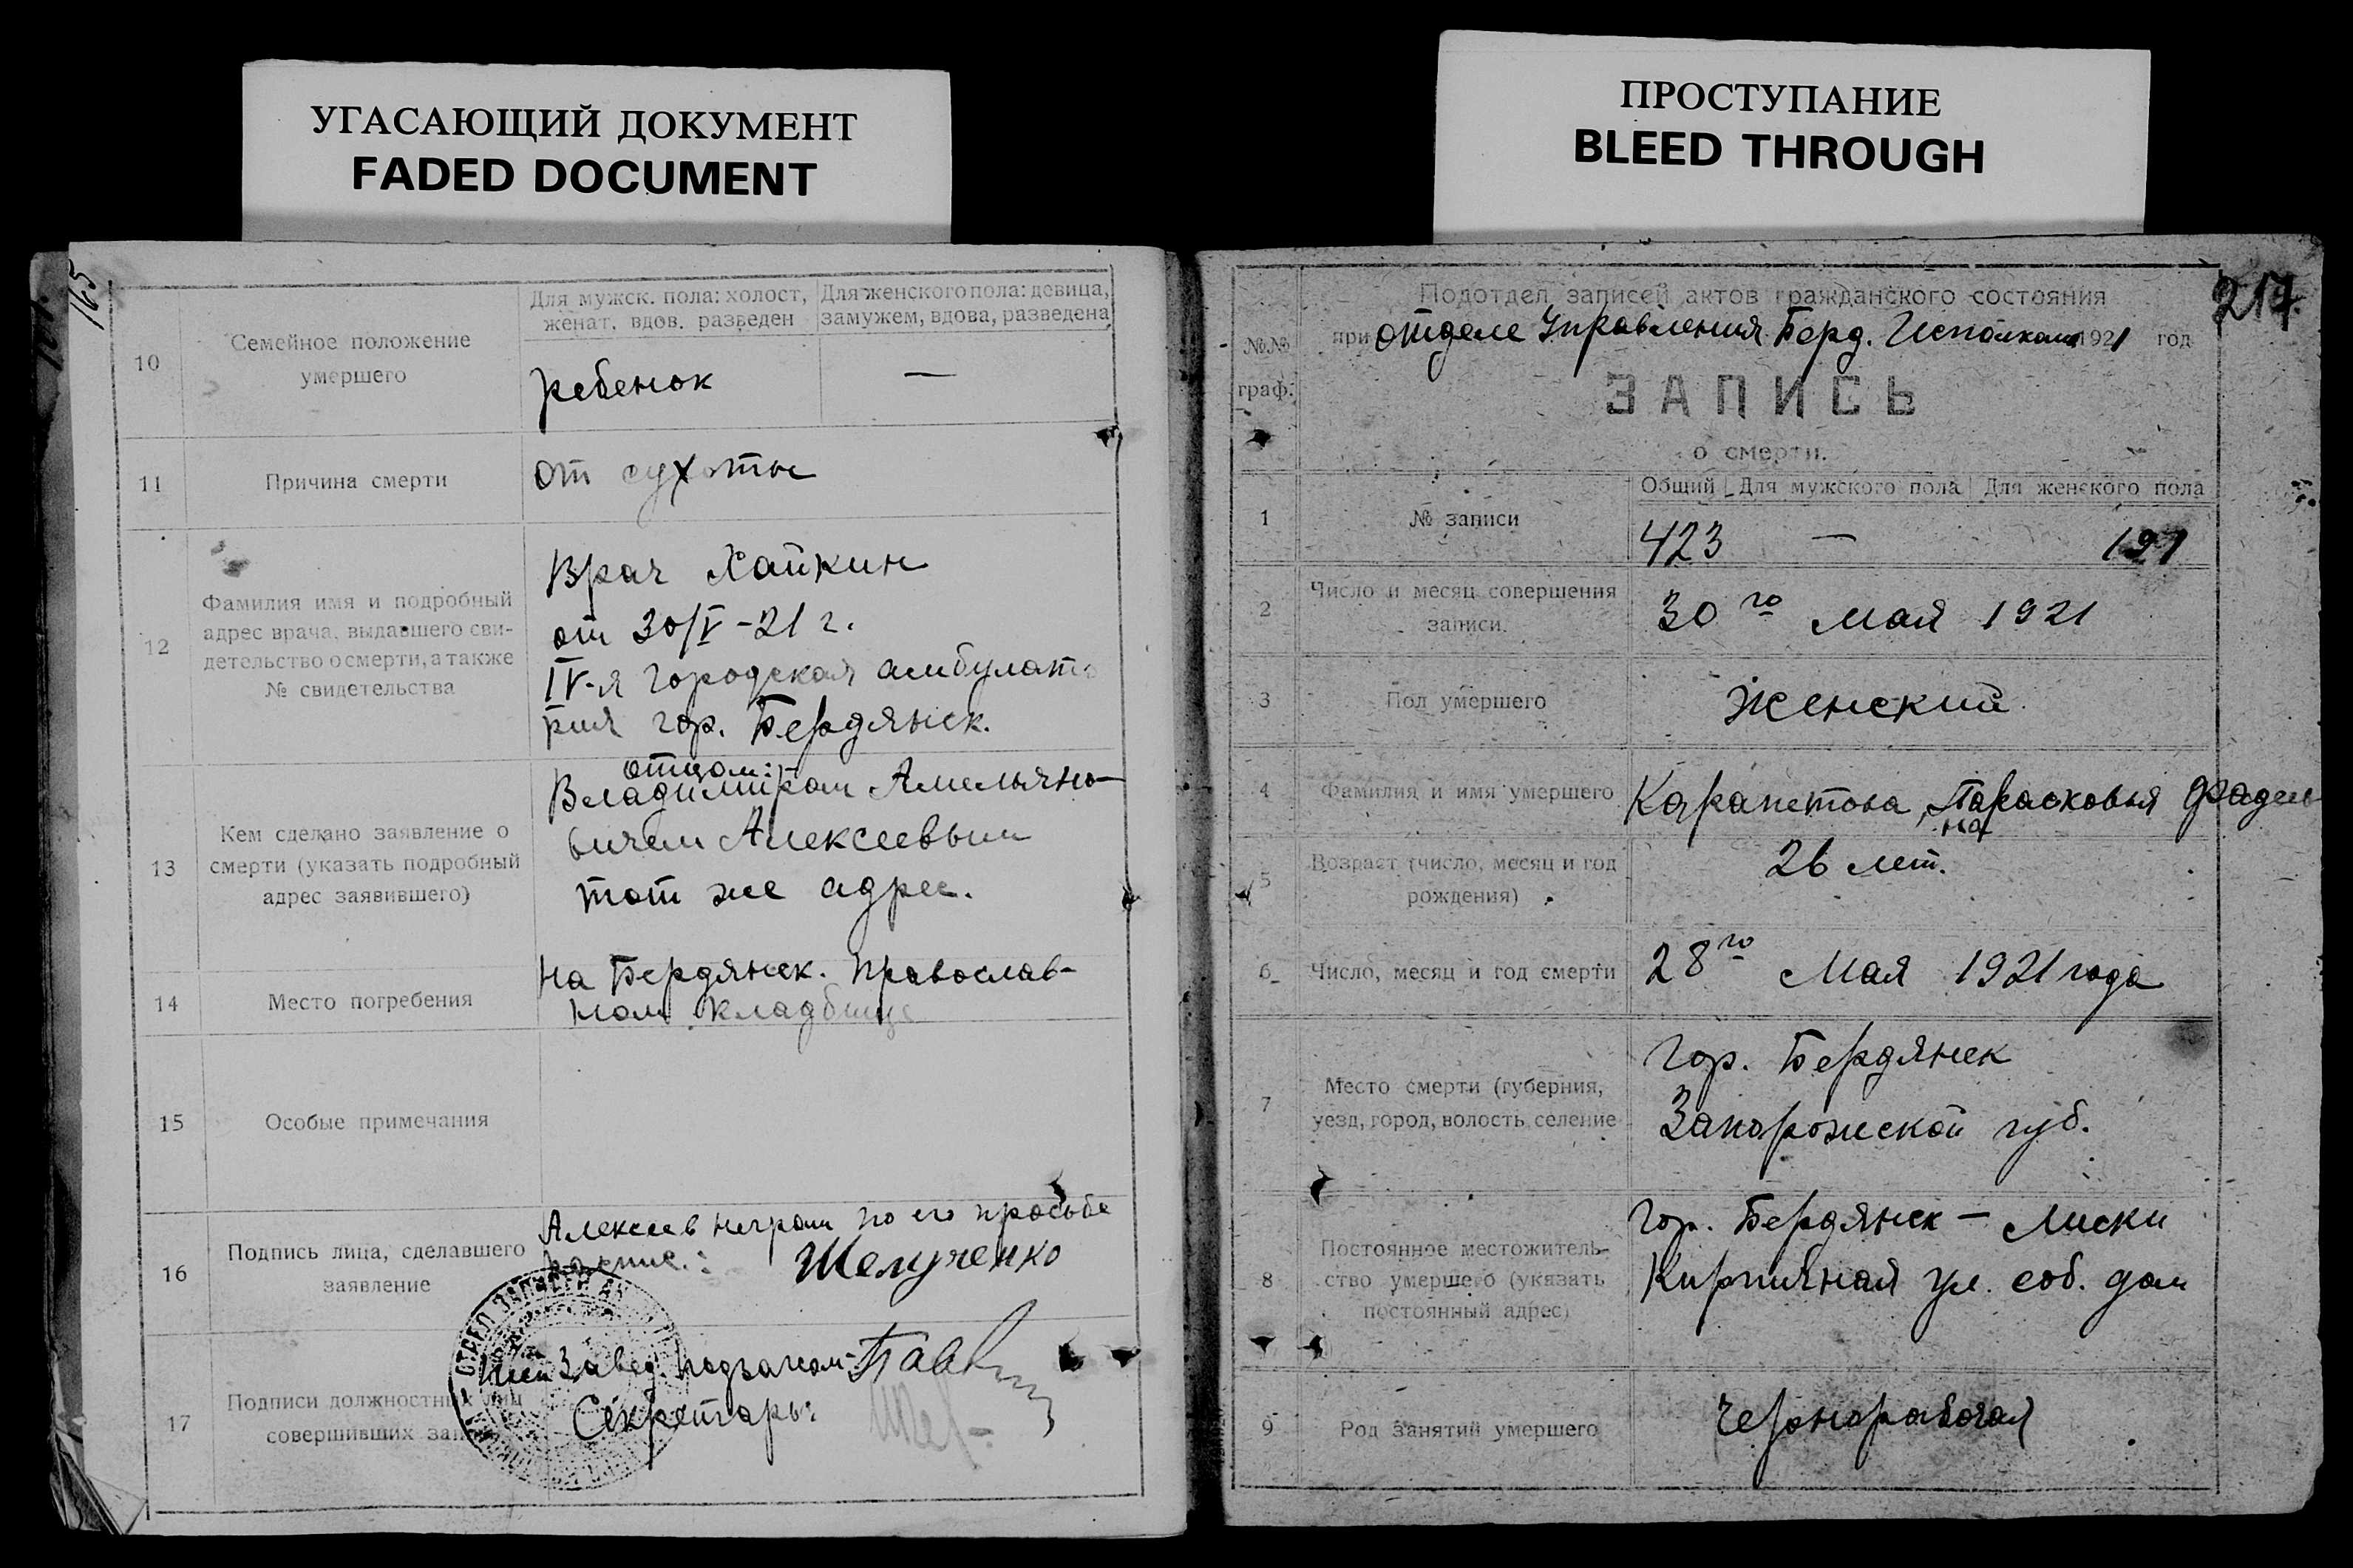 УГАСАЮЩИЙ ДОКУМЕНТ
FADED DOCUMENT
165
10
Семейное положение
умершего
Для мужск. пола: холост,
женат, вдов. разведен
Для женского пола: девица,
замужем, вдова, разведена
ребенок
—
11
Причина смерти
от сухоты
12
Фамилия имя и подробный
адрес врача, выдавшего сви-
детельство о смерти, а также
№ свидетельства
Врач Хайкин
от 30/V-21 г.
IV-я городская амбулато
рия гор. Бердянск.
13
Кем сделано заявление о
смерти (указать подробный
адрес заявившего)
отцом:
Владимиром Амельяно-
вичем Алексеевым
тот же адрес.
14
Место погребения
на Бердянск. православ-
ном кладбище
15
Особые примечания
16
Подпись лица, сделавшего
заявление
Алексеев неграм по его просьбе
распис.: Шелученко
17
Подписи должностных лиц
совершивших зап
Завед. подзагом
Секретарь:
ПРОСТУПАНИЕ
BLEED THROUGH
217.
№№
граф.
Подотдел записей актов гражданского состояния
при отделе Управления Берд. Исполкома 1921 год
ЗАПИСЬ
о смерти.
1
№ записи
Общий Для мужского пола Для женского пола
423 — 191
2
Число и месяц совершения
записи.
30го Мая 1921
3
Пол умершего
Женский
4
Фамилия и имя умершего
Карапетова, Парасковья Фадеев
на
5
Возраст (число, месяц и год
рождения)
26 лет.
6
Число, месяц и год смерти
28го Мая 1921 года
7
Место смерти (губерния,
уезд, город, волость, селение
гор. Бердянск
Запорожской губ.
8
Постоянное местожитель-
ство умершего (указать
постоянный адрес)
гор. Бердянск — Лиски
Кирпичная ул. соб. дом
9
Род занятий умершего
чернорабочая